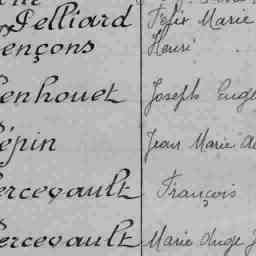 Pelliard Félix Marie
ençons Henri
enhouet Joseph Euge
épin Jean Marie
ercevault François
ercevault Marie Ange J